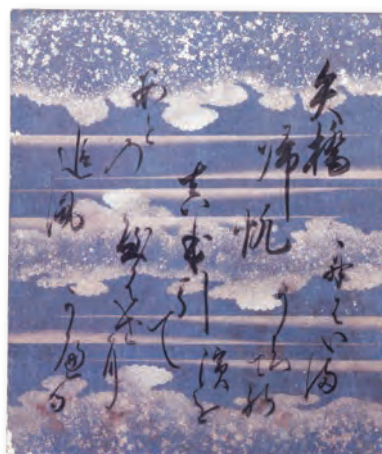 矢橋
帰帆
真帆引て
矢はせに
かへる
舟はいま
うち出の
濱を
あとの
追風